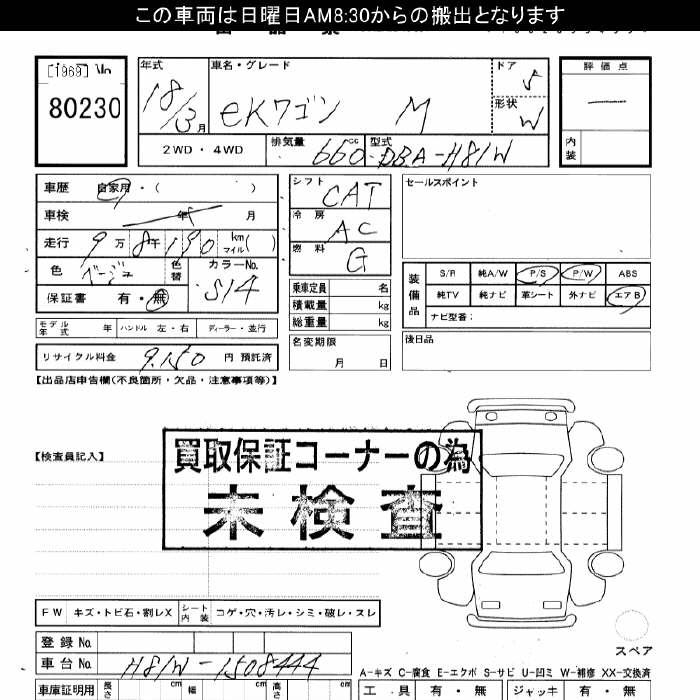 この車両は日曜日AM8:30からの搬出となります
[1969]
80230
年式 車名・グレード ドア 評価点
18/3月 eKワゴン M 5
形状 W
2WD・4WD 排気量 660cc 型式 DBA-H81W 内装
車歴 自家用・( ) シフト CAT セールスポイント
車検 年 月 冷房 AC
走行 9万8千190 km マイル( ) 燃料 G
色 ベージュ 色替 カラーNo. S14 装備品 S/R 純A/W P/S P/W ABS
保証書 有・無 乗車定員 名 純TV 純ナビ 革シート 外ナビ エアB
積載量 kg ナビ型番:
モデル年式 年 ハンドル 左・右 ディーラー・並行 総重量 kg
リサイクル料金 9,150 円 預託済 名変期限 月 日 後日品
【出品店申告欄(不良箇所・欠品・注意事項等)】
買取保証コーナーの為
【検査員記入】
未検査
FW キズ・トビ石・割レX シート内装 コゲ・穴・汚レ・シミ・破レ・スレ
登録No
スペア
車台No H81W-1508444
A-キズ C-腐食 E-エクボ S-サビ U-凹ミ W-補修 XX-交換済
車庫証明用 長さ cm 幅 cm 高さ cm 工具 有・無 ジャッキ 有・無